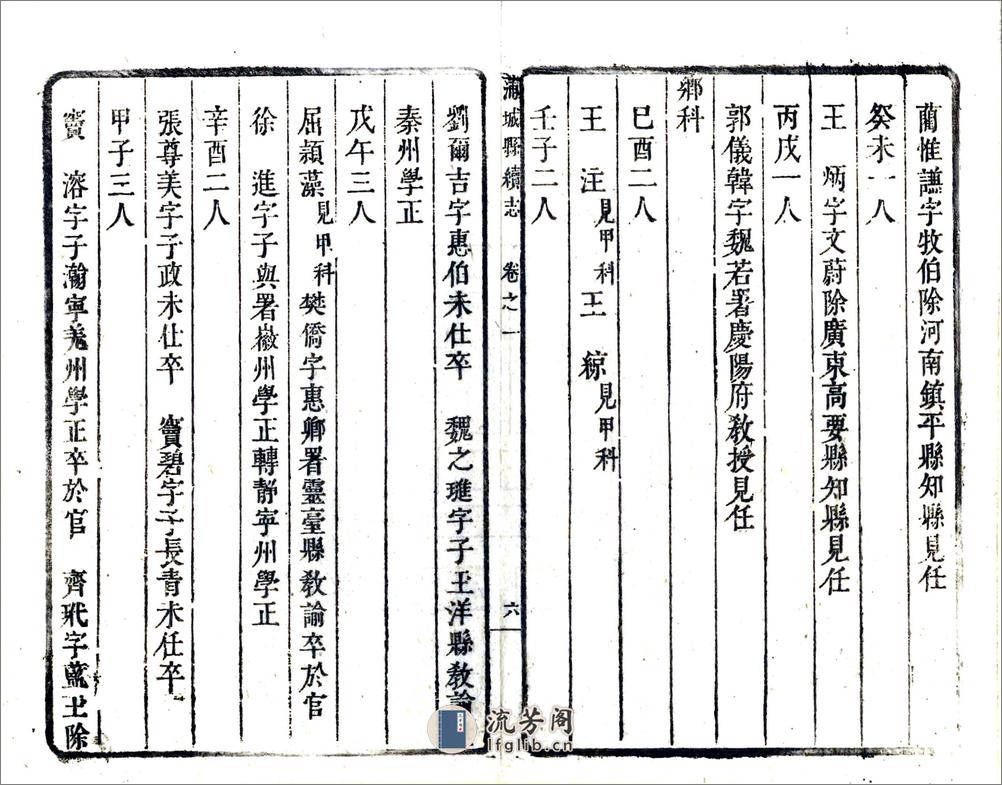 藺惟謙字牧伯除河南鎮平縣知縣見任
癸未一人
王　炳字文蔚除廣東高要縣知縣見任
丙戌一人
郭儀韓字魏若署慶陽府敎授見任
鄉科
巳酉二人
王　注見甲科王　綜見甲科
壬子二人
蒲城縣續志　卷之一　六
劉爾吉字惠伯未仕卒　魏之璡字子王洋縣敎諭
秦州學正
戊午三人
屈頴藻見甲科樊僑字惠卿署靈臺縣敎諭卒於官
徐　進字子與署徽州學正轉静寧州學正
辛酉二人
張尊美字子政未仕卒　竇碧字子長青未仕卒
甲子三人
竇　溶字子瀚寧羗州學正卒於官　齊玳字藍玉除
流芳阁
lfglib.cn